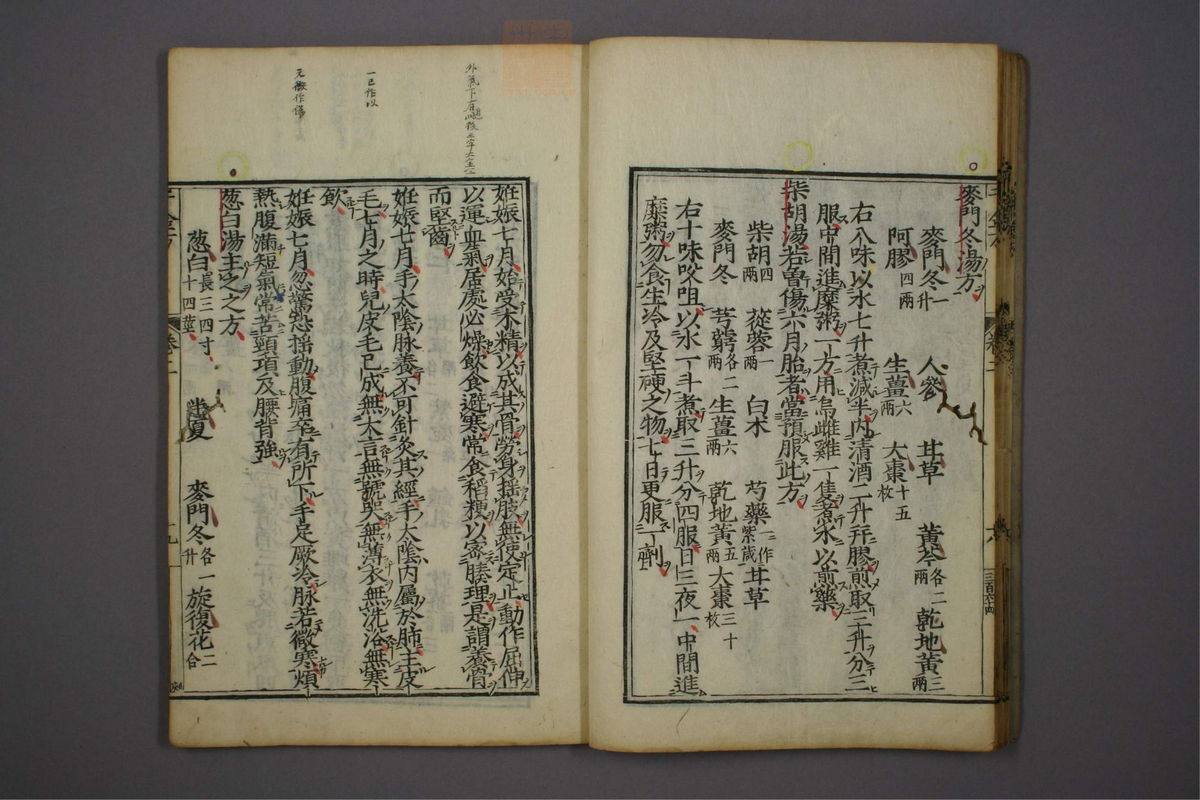 麥門冬湯方
麥門冬一升　人參　甘草　黃芩各二兩　乾地黃三兩
阿膠四兩　生薑六兩　大棗十五枚
右八味以水七升煮減半內清酒二升并膠煎取三升分三
服中間進糜粥一方用烏雌雞一隻煮水以煎藥
柴胡湯若曾傷六月胎者當預服此方
柴胡四兩　蓯蓉一兩　白朮　芍藥一作紫葳　甘草
麥門冬　芎藭各二兩　生薑六兩　乾地黃五兩　大棗三十枚
右十味㕮咀以水一斗煮取三升分四服日三夜一中間進
糜粥勿食生冷及堅硬之物七日更服一劑
三百六十四
妊娠七月始受木精以成其骨勞身搖肢無使定止動作屈伸
以運血氣居處必燥飲食避寒常食稻粳以密腠理是謂養骨
而堅齒
妊娠七月手太陰脉養不可針灸其經手太陰內屬於肺主皮
毛七月之時兒皮毛已成無大言無號哭無薄衣無洗浴無寒
飲
妊娠七月忽驚恐搖動腹痛卒有所下手足厥冷脉若微寒煩
熱腹滿短氣常苦頸項及腰背強
葱白湯主之之方
葱白長三四寸十四莖　半夏　麥門冬各一升　旋復花二合
一已作以